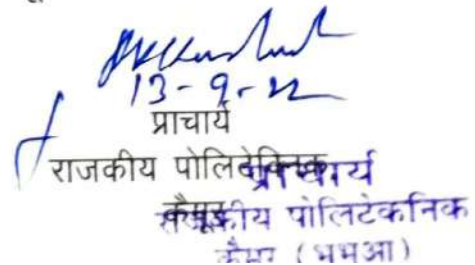 13-9-22
प्राचार्य
राजकीय पोलिटेक्निक
कैमूर
प्राचार्य
राजकीय पोलिटेकनिक
कैमूर (भभुआ)